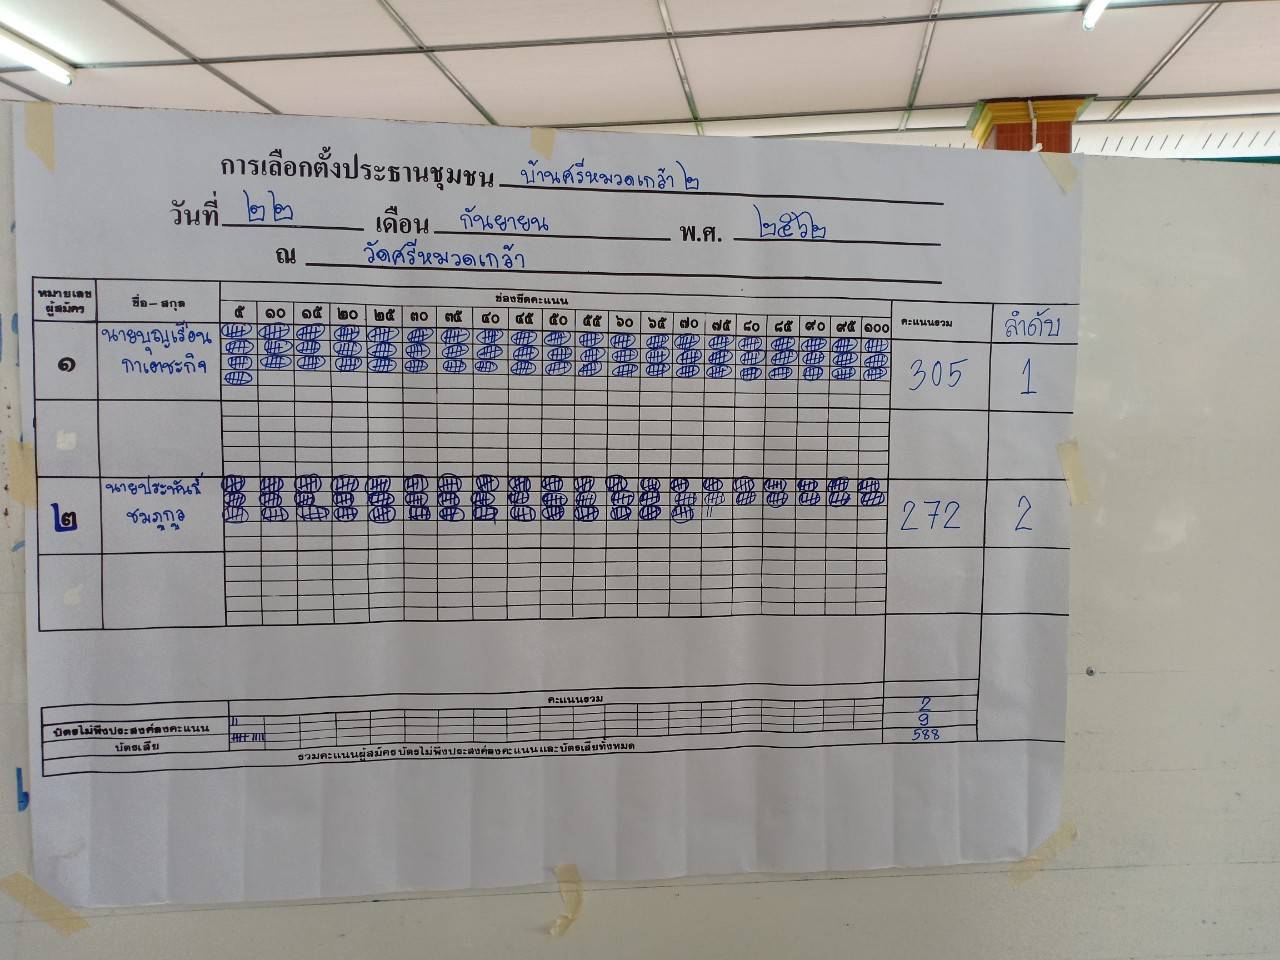 การเลือกตั้งประธานชุมชน บ้านศรีหมวดเกล้า ๒
วันที่ ๒๒ เดือน กันยายน พ.ศ. ๒๕๖๒
ณ วัดศรีหมวดเกล้า
หมายเลขผู้สมัคร ชื่อ-สกุล ช่องขีดคะแนน คะแนนรวม ลำดับ
๕ ๑๐ ๑๕ ๒๐ ๒๕ ๓๐ ๓๕ ๔๐ ๔๕ ๕๐ ๕๕ ๖๐ ๖๕ ๗๐ ๗๕ ๘๐ ๘๕ ๙๐ ๙๕ ๑๐๐
๑ นายบุญเรือน 305 1
๒ นายประพันธ์ 272 2
คะแนนรวม
บัตรไม่พึงประสงค์ลงคะแนน 2
บัตรเสีย 9
รวมคะแนนผู้สมัคร บัตรไม่พึงประสงค์ลงคะแนน และบัตรเสียทั้งหมด 588